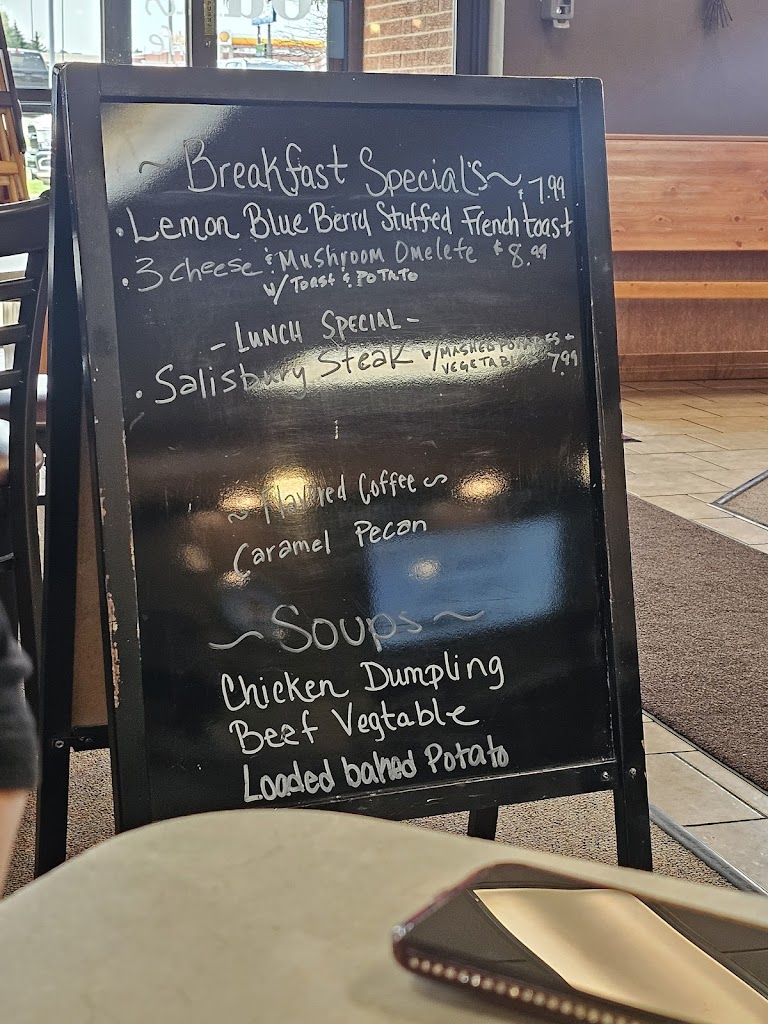 ~ Breakfast Special's ~ $7.99
• Lemon Blue Berry Stuffed French toast
• 3 cheese & Mushroom Omelete $8.99
w/ Toast & Potato
- Lunch Special -
• Salisbury Steak w/ Mashed Potatoes +
Vegetable 7.99
~ Flavored Coffee ~
Caramel Pecan
~ Soups ~
Chicken Dumpling
Beef Vegtable
Loaded baked Potato